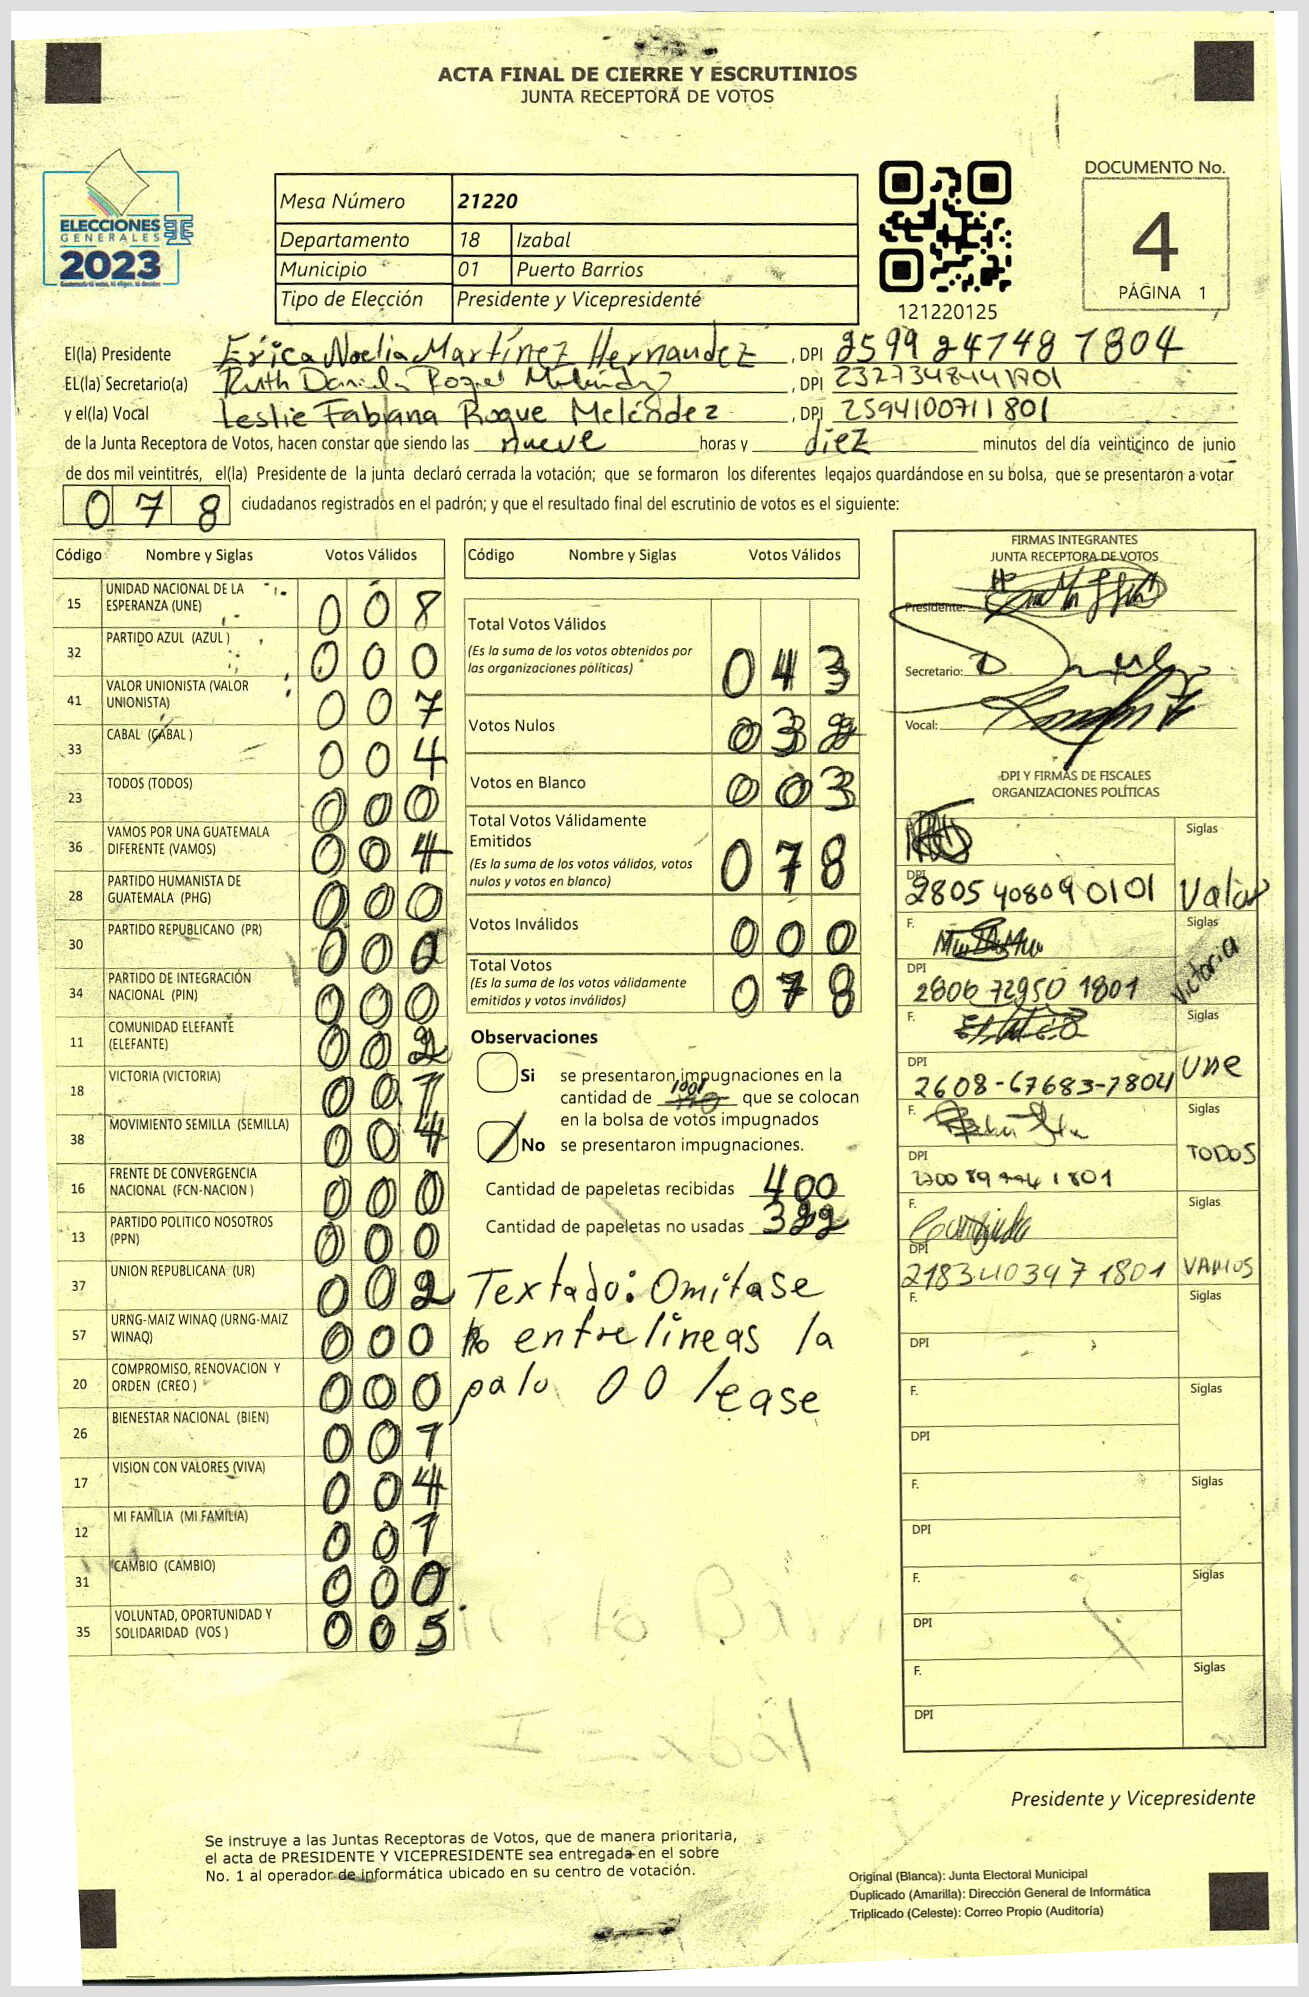 ACTA FINAL DE CIERRE Y ESCRUTINIOS
JUNTA RECEPTORA DE VOTOS
ELECCIONES
GENERALES
2023
Mesa Número 21220
Departamento 18 Izabal
Municipio 01 Puerto Barrios
Tipo de Elección Presidente y Vicepresidente
121220125
DOCUMENTO No.
4
PÁGINA 1
El(la) Presidente Erica Noelia Martínez Hernandez, DPI 2599 24748 1804
EL(la) Secretario(a) Ruth Daniela Roque Meléndez, DPI
y el(la) Vocal Leslie Fabiana Roque Meléndez, DPI 2594100711801
de la Junta Receptora de Votos, hacen constar que siendo las nueve horas y diez minutos del día veinticinco de junio
de dos mil veintitrés, el(la) Presidente de la junta declaró cerrada la votación; que se formaron los diferentes legajos quardándose en su bolsa, que se presentaron a votar
078 ciudadanos registrados en el padrón; y que el resultado final del escrutinio de votos es el siguiente:
Código Nombre y Siglas Votos Válidos
15 UNIDAD NACIONAL DE LA ESPERANZA (UNE) 008
32 PARTIDO AZUL (AZUL ) 000
41 VALOR UNIONISTA (VALOR UNIONISTA) 007
33 CABAL (CABAL ) 004
23 TODOS (TODOS) 000
36 VAMOS POR UNA GUATEMALA DIFERENTE (VAMOS) 004
28 PARTIDO HUMANISTA DE GUATEMALA (PHG) 000
30 PARTIDO REPUBLICANO (PR) 00
34 PARTIDO DE INTEGRACIÓN NACIONAL (PIN) 000
11 COMUNIDAD ELEFANTE (ELEFANTE) 002
18 VICTORIA (VICTORIA) 001
38 MOVIMIENTO SEMILLA (SEMILLA) 004
16 FRENTE DE CONVERGENCIA NACIONAL (FCN-NACION ) 000
13 PARTIDO POLITICO NOSOTROS (PPN) 000
37 UNION REPUBLICANA (UR) 002
57 URNG-MAIZ WINAQ (URNG-MAIZ WINAQ) 000
20 COMPROMISO, RENOVACION Y ORDEN (CREO ) 000
26 BIENESTAR NACIONAL (BIEN) 001
17 VISION CON VALORES (VIVA) 004
12 MI FAMILIA (MI FAMILIA) 001
31 CAMBIO (CAMBIO) 000
35 VOLUNTAD, OPORTUNIDAD Y SOLIDARIDAD (VOS ) 005
Código Nombre y Siglas Votos Válidos
Total Votos Válidos
(Es la suma de los votos obtenidos por
las organizaciones políticas) 043
Votos Nulos 032
Votos en Blanco 003
Total Votos Válidamente
Emitidos
(Es la suma de los votos válidos, votos
nulos y votos en blanco) 078
Votos Inválidos 000
Total Votos
(Es la suma de los votos válidamente
emitidos y votos inválidos) 078
Observaciones
Si se presentaron impugnaciones en la
cantidad de que se colocan
en la bolsa de votos impugnados
No se presentaron impugnaciones.
Cantidad de papeletas recibidas 400
Cantidad de papeletas no usadas 322
Textado: Omitase
entrelineas la
00 lease
FIRMAS INTEGRANTES
JUNTA RECEPTORA DE VOTOS
Presidente:
Secretario:
Vocal:
DPI Y FIRMAS DE FISCALES
ORGANIZACIONES POLÍTICAS
Siglas
DPI 2805 40809 0101 Valor
F. Siglas
DPI 2806 72950 1801 Victoria
F. Siglas
DPI 2608-67683-1804 Une
F. Siglas
DPI TODOS
F. Siglas
DPI 2183403971801 VAMOS
F. Siglas
DPI
F. Siglas
DPI
F. Siglas
DPI
F. Siglas
DPI
F. Siglas
DPI
Presidente y Vicepresidente
Se instruye a las Juntas Receptoras de Votos, que de manera prioritaria,
el acta de PRESIDENTE Y VICEPRESIDENTE sea entregada en el sobre
No. 1 al operador de informática ubicado en su centro de votación.
Original (Blanca): Junta Electoral Municipal
Duplicado (Amarilla): Dirección General de Informática
Triplicado (Celeste): Correo Propio (Auditoría)